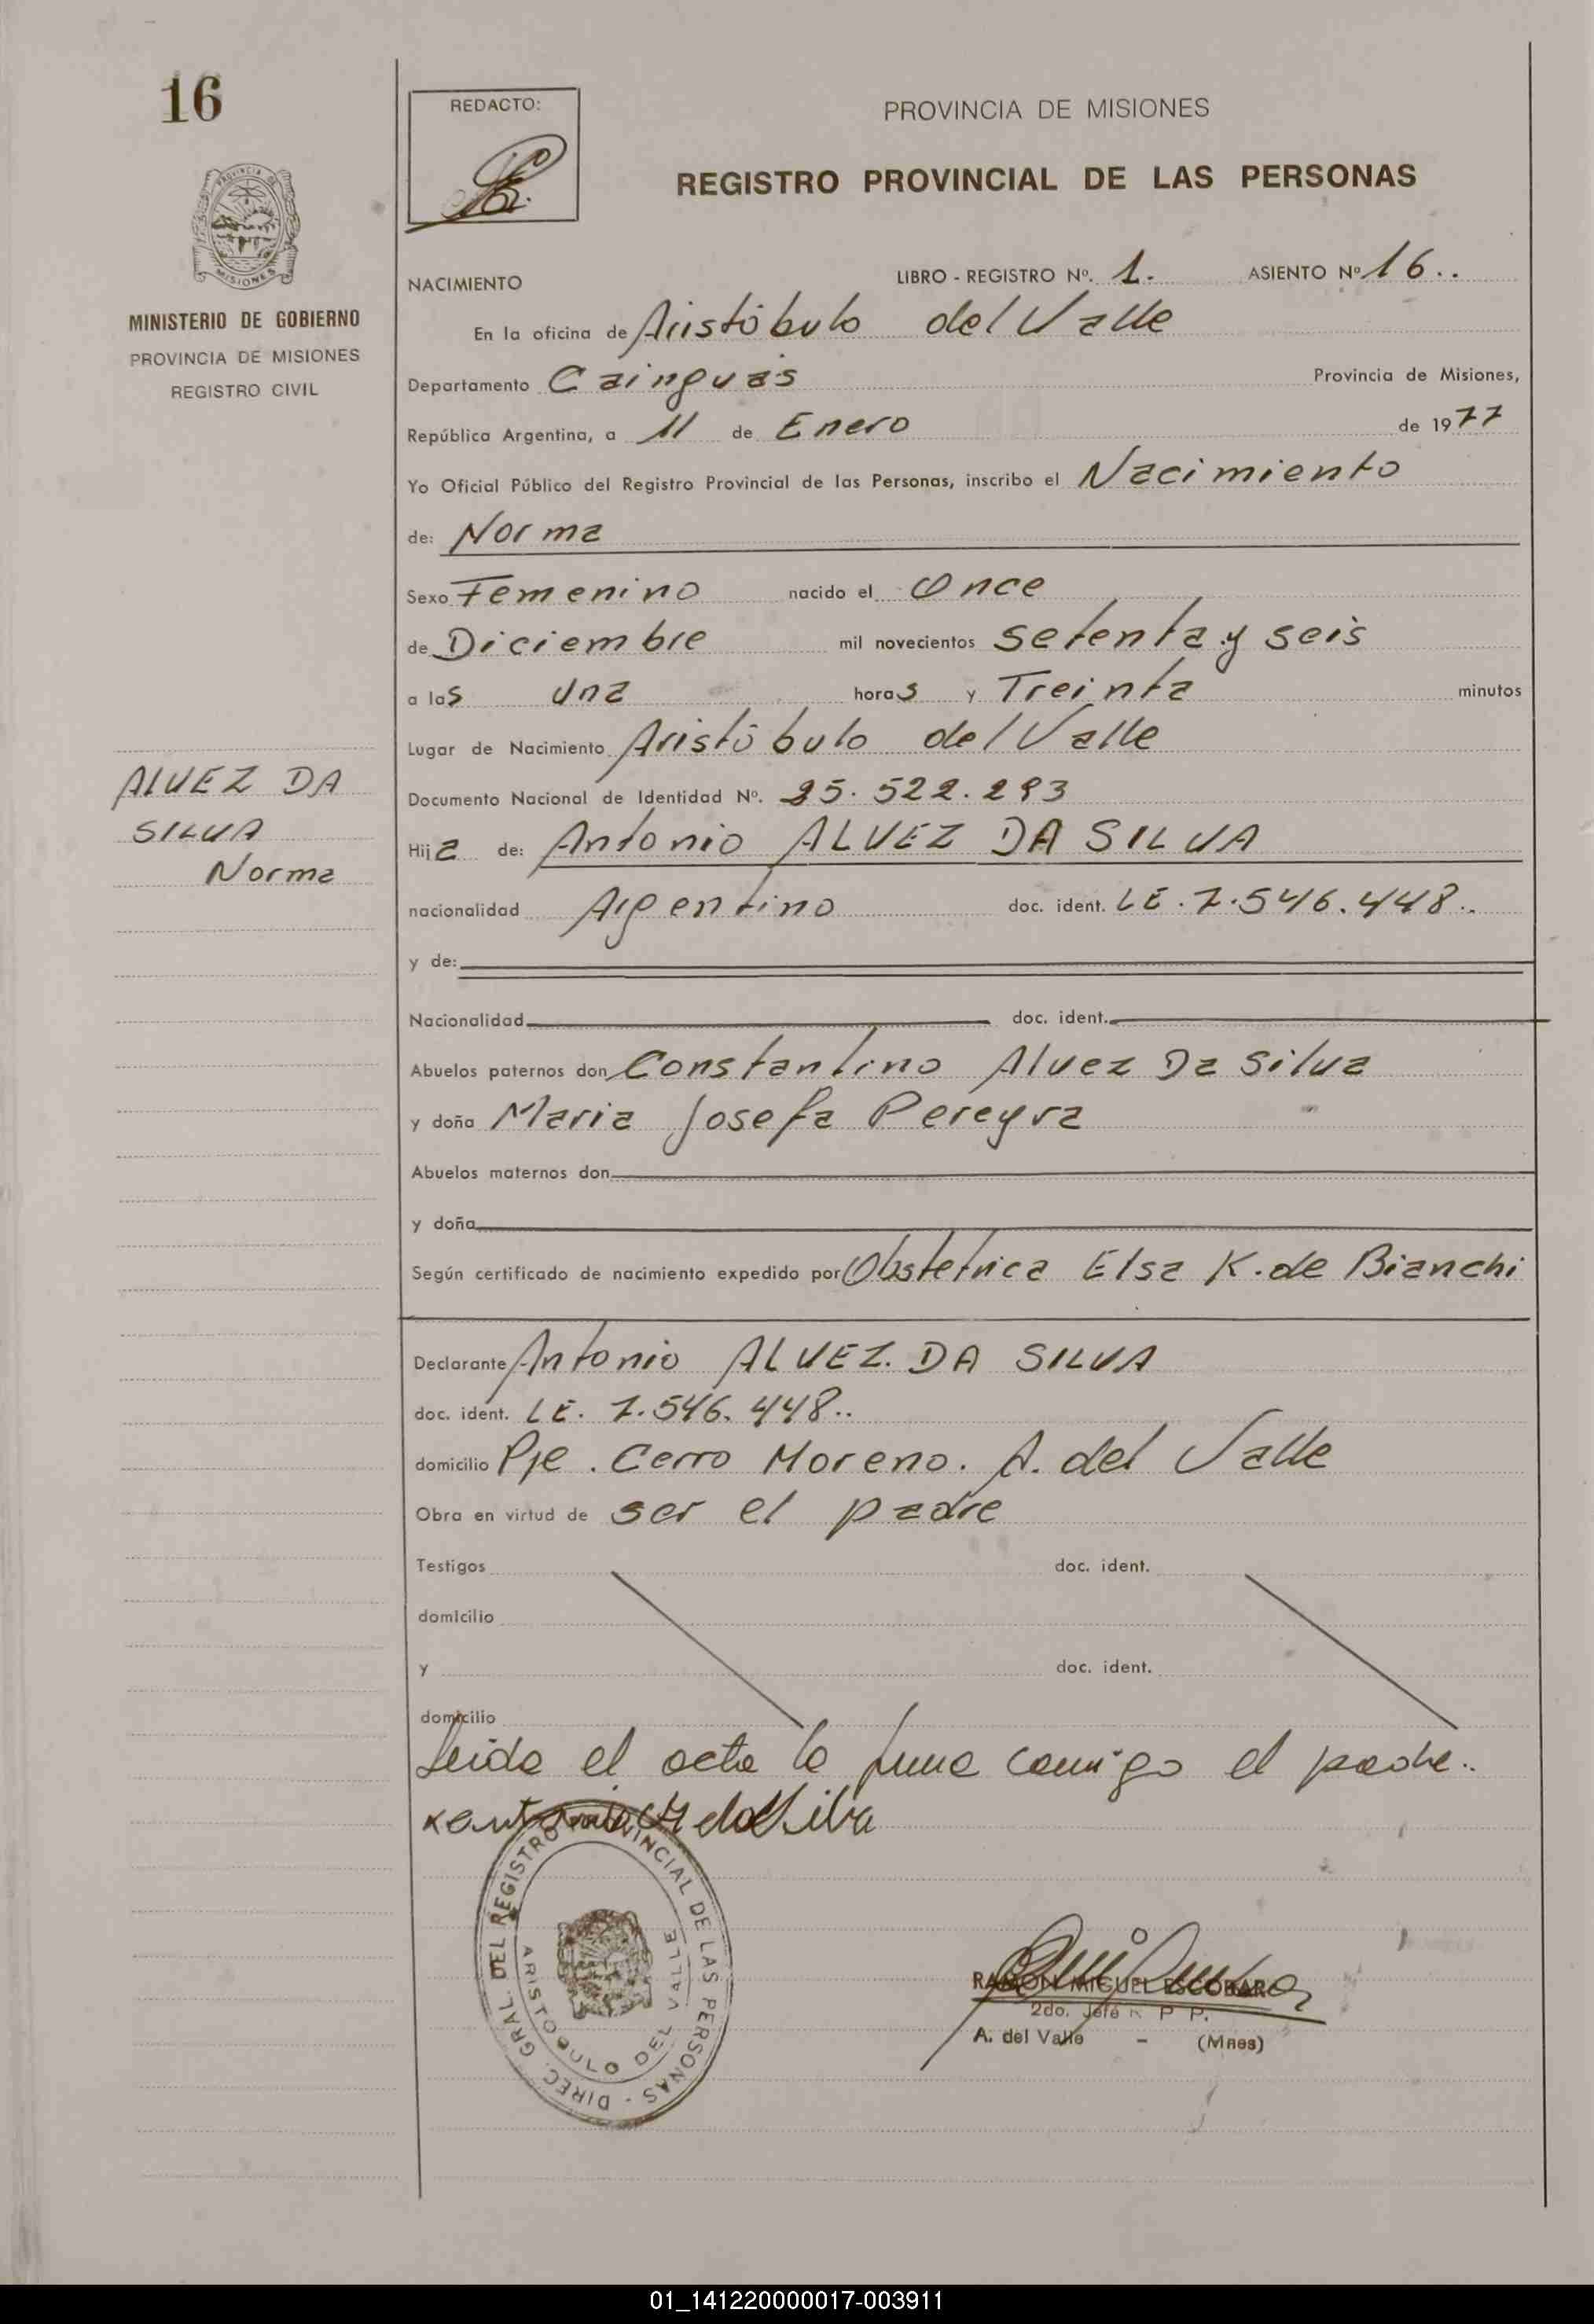 16
PROVINCIA DE
MISIONES
MINISTERIO DE GOBIERNO
PROVINCIA DE MISIONES
REGISTRO CIVIL
ALVEZ DA
SILVA
Norma
REDACTO:
PROVINCIA DE MISIONES
REGISTRO PROVINCIAL DE LAS PERSONAS
NACIMIENTO LIBRO - REGISTRO Nº. 1. ASIENTO Nº 16..
En la oficina de Aristóbulo del Valle
Departamento Cainguás Provincia de Misiones,
República Argentina, a 11 de Enero de 1977
Yo Oficial Público del Registro Provincial de las Personas, inscribo el Nacimiento
de: Norma
Sexo Femenino nacido el Once
de Diciembre mil novecientos setenta y seis
a las una horas y Treinta minutos
Lugar de Nacimiento Aristóbulo del Valle
Documento Nacional de Identidad Nº. 25.522.293
Hija de: Antonio ALVEZ DA SILVA
nacionalidad Argentino doc. ident. LE. 7.546.448..
y de:
Nacionalidad doc. ident.
Abuelos paternos don Constantino Alvez Da Silva
y doña Maria Josefa Pereyra
Abuelos maternos don
y doña
Según certificado de nacimiento expedido por Obstetrica Elsa K. de Bianchi
Declarante Antonio ALVEZ. DA SILVA
doc. ident. LE. 7.546.448..
domicilio Pje. Cerro Moreno. A. del Valle
Obra en virtud de ser el padre
Testigos doc. ident.
domicilio
y doc. ident.
domicilio
Leida el acta la firma conmigo el padre..
DIREC. GRAL. DEL REGISTRO PROVINCIAL DE LAS PERSONAS
ARISTOBULO DEL VALLE
RAMON MIGUEL ESCOBAR
2do. Jefe R. P. P.
A. del Valle - (Mnes)
01_141220000017-003911